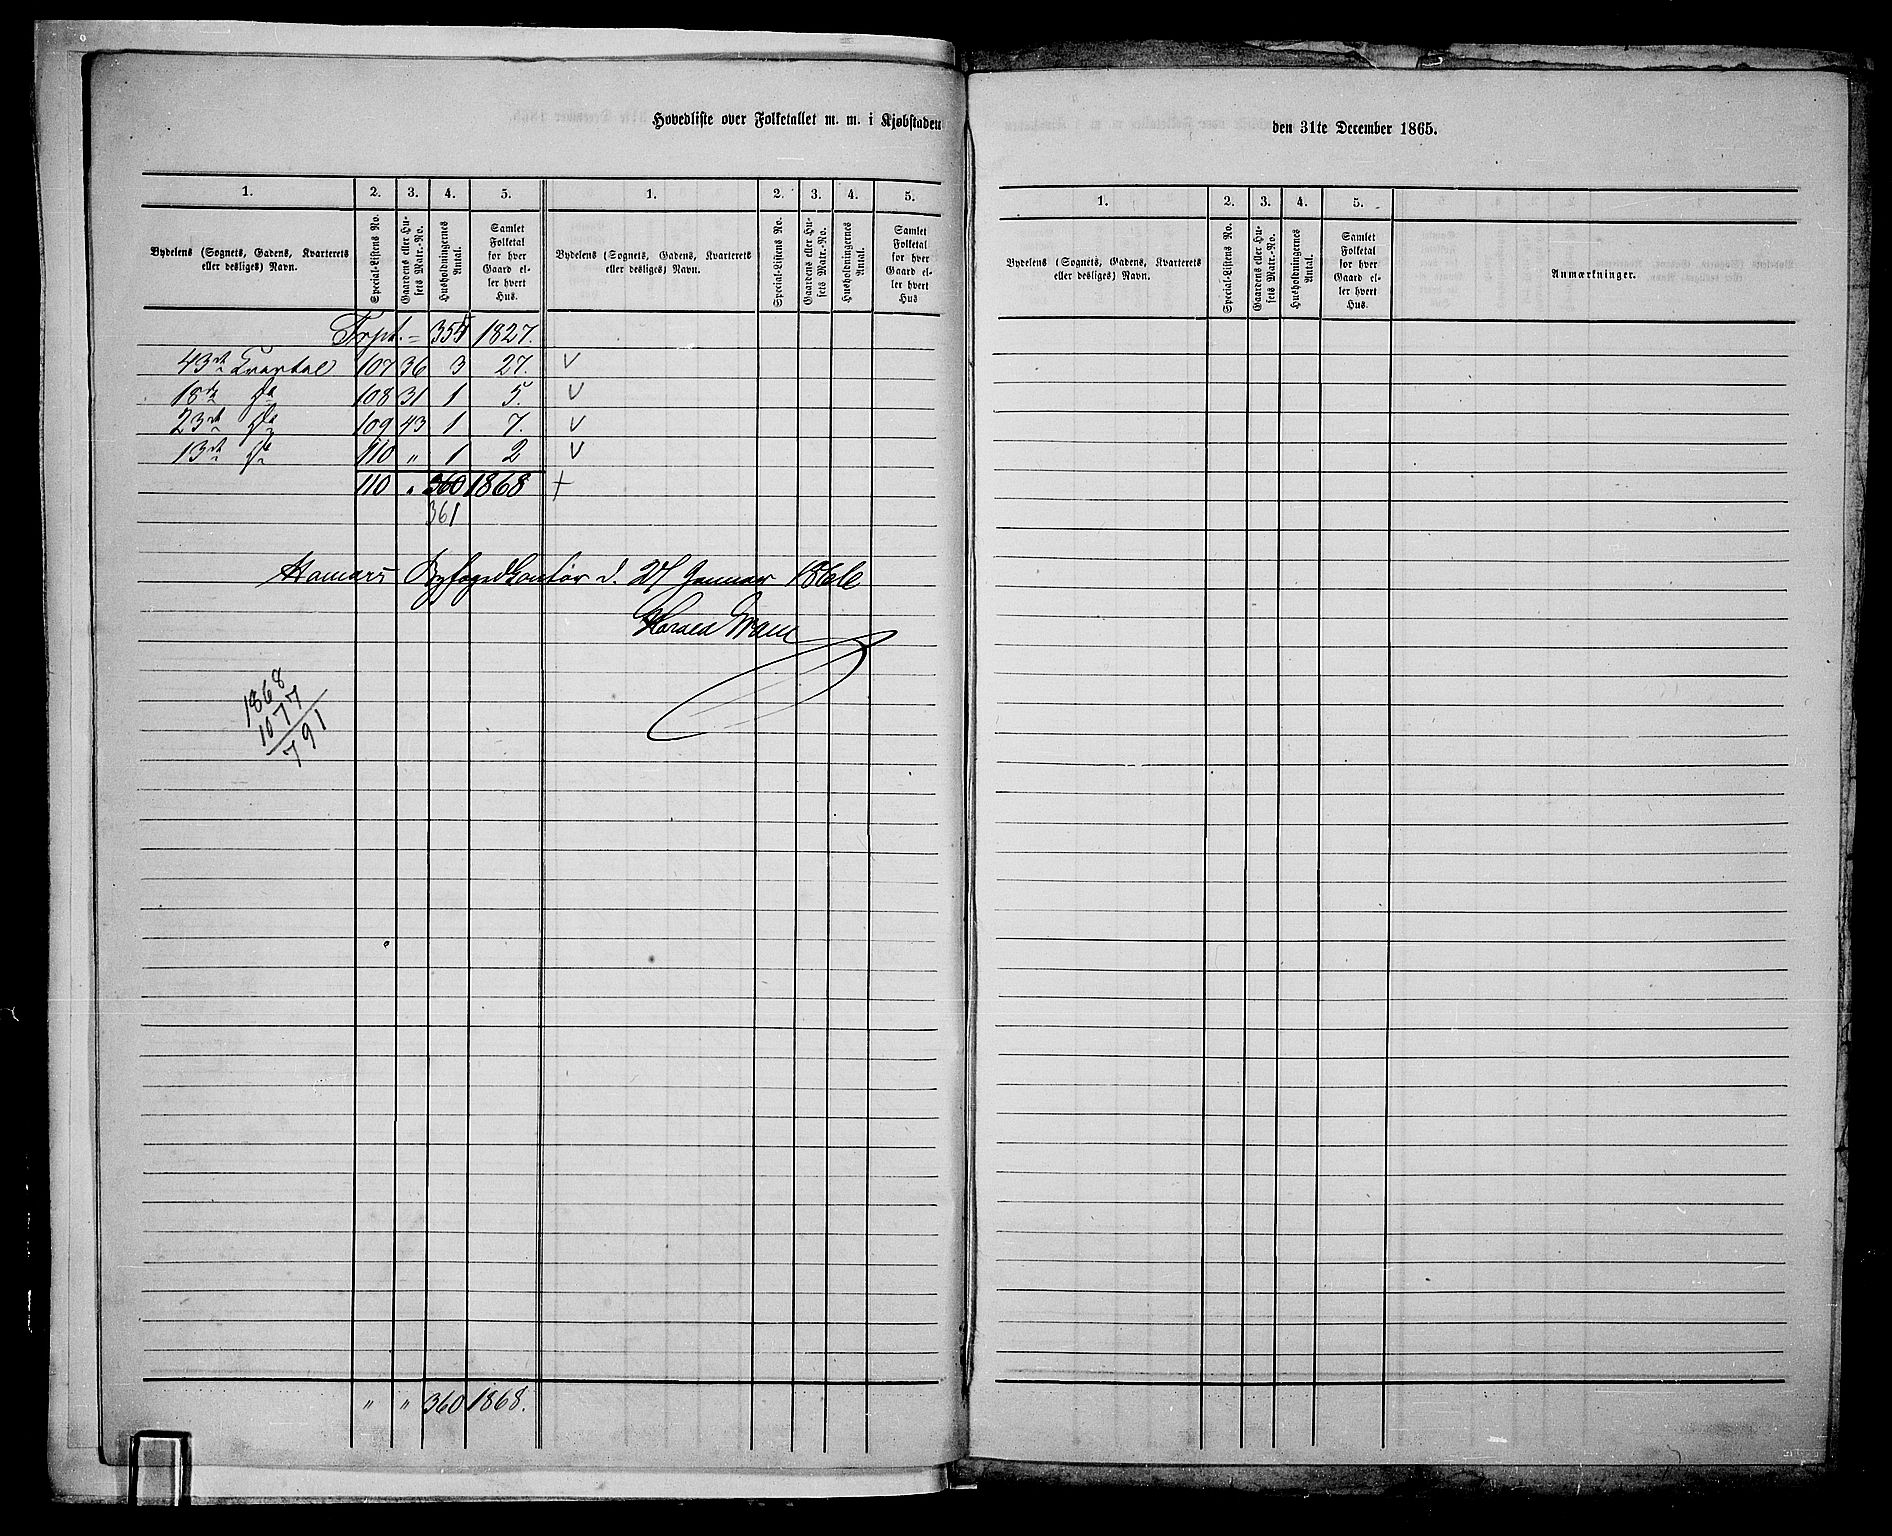 Hovedliste over Folketallet m. m. i Kjøbstaden den 31te December 1865.
1. 2. 3. 4. 5. 1. 2. 3. 4. 5. 1. 2. 3. 4. 5.
Bydelens (Sognets, Gadens, Kvarterets eller desliges) Navn. Special-Listens No. Gaardens eller Husets Matr.-No. Husholdningernes Antal. Samlet Folketal for hver Gaard eller hvert Hus.
Bydelens (Sognets, Gadens, Kvarterets eller desliges) Navn. Special-Listens No. Gaardens eller Husets Matr.-No. Husholdningernes Antal. Samlet Folketal for hver Gaard eller hvert Hus
Bydelens (Sognets, Gadens, Kvarterets eller desliges) Navn. Special-Listens No. Gaardens eller Husets Matr.-No. Husholdningernes Antal. Samlet Folketal for hver Gaard eller hvert Hus. Anmærkninger.
Trpt. = 1827.
43de Kvartal 107 36 3 27. V
18de do 108 31 1 5. V
23de do 109 43 1 7. V
13de do 110 " 1 2 V
110 " 360 1868 +
361
Hamars Byfogedkontor d. 27 Januar 1866
Harald
1868
1077
791
" " 360 1868.